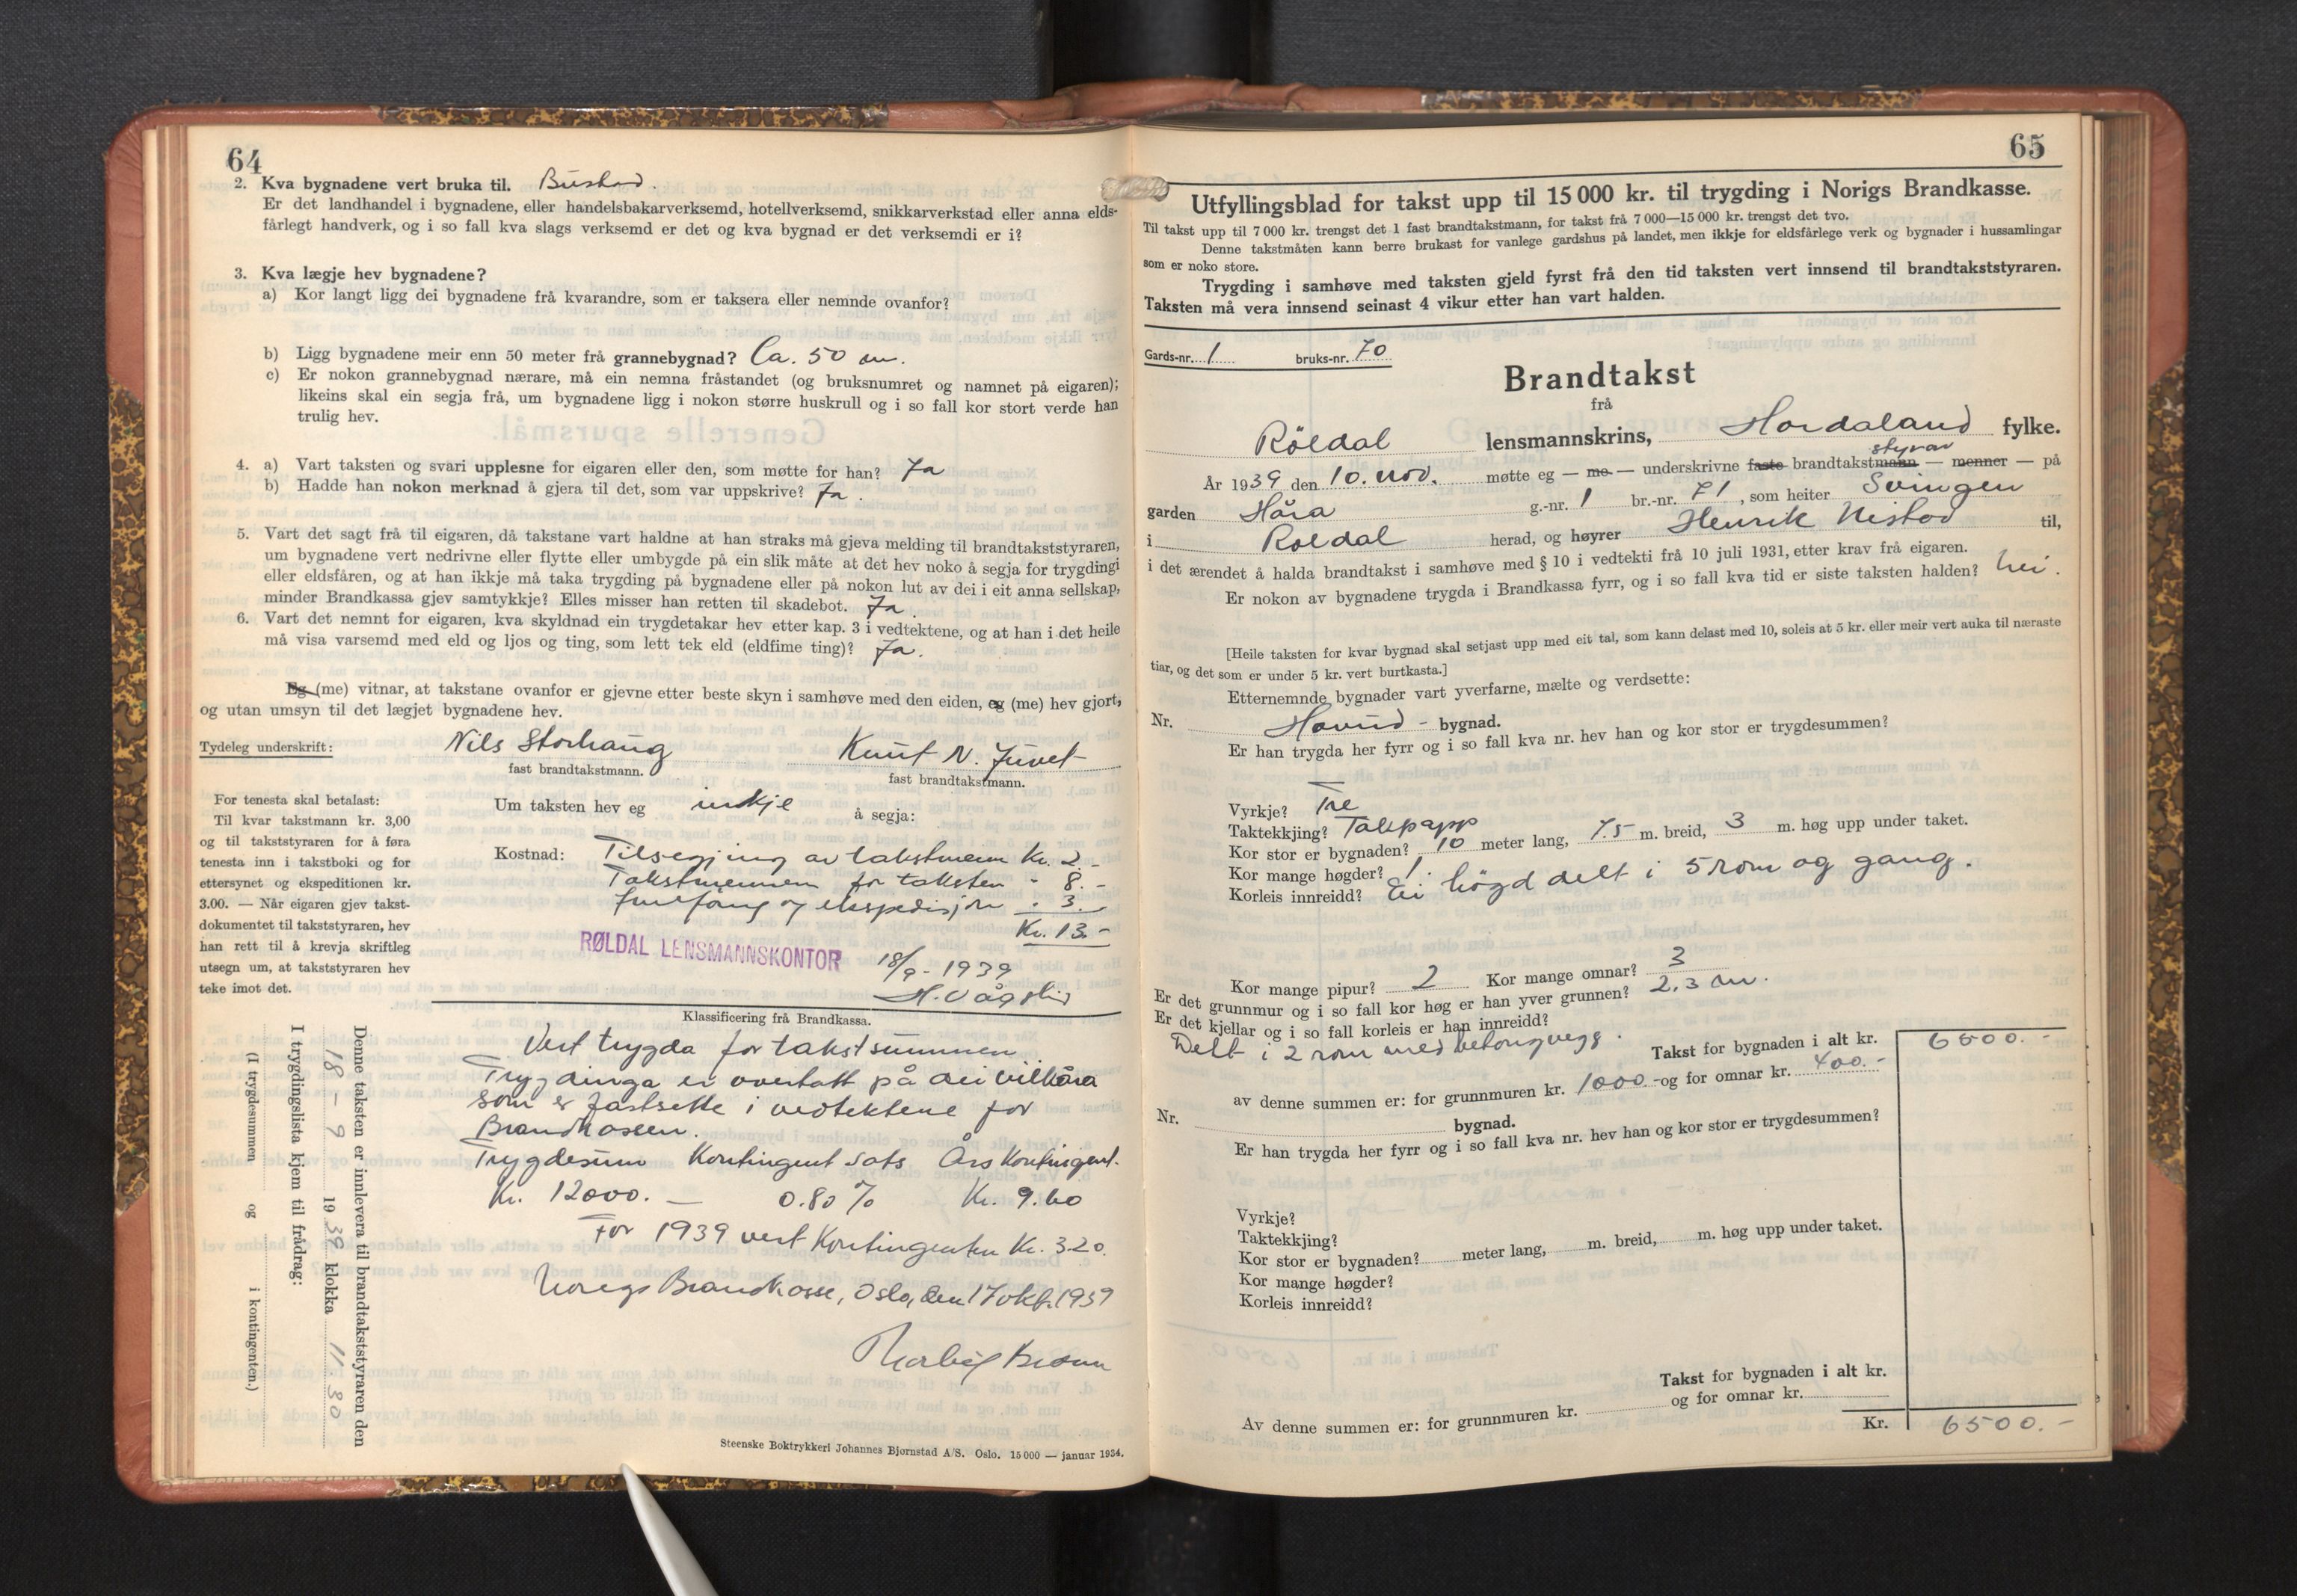 64
2. Kva bygnadene vert bruka til. Bustad.
Er det landhandel i bygnadene, eller handelsbakarverksemd, hotellverksemd, snikkarverkstad eller anna elds-
fårlegt handverk, og i so fall kva slags verksemd er det og kva bygnad er det verksemdi er i?
3. Kva lægje hev bygnadene?
a) Kor langt ligg dei bygnadene frå kvarandre, som er taksera eller nemnde ovanfor?
b) Ligg bygnadene meir enn 50 meter frå grannebygnad? Ca. 50 m.
c) Er nokon grannebygnad nærare, må ein nemna fråstandet (og bruksnumret og namnet på eigaren);
likeins skal ein segja frå, um bygnadene ligg i nokon større huskrull og i so fall kor stort verde han
trulig hev.
4. a) Vart taksten og svari upplesne for eigaren eller den, som møtte for han? Ja
b) Hadde han nokon merknad å gjera til det, som var uppskrive? Ja.
5. Vart det sagt frå til eigaren, då takstane vart haldne at han straks må gjeva melding til brandtakststyraren,
um bygnadene vert nedrivne eller flytte eller umbygde på ein slik måte at det hev noko å segja for trygdingi
eller eldsfåren, og at han ikkje må taka trygding på bygnadene eller på nokon lut av dei i eit anna sellskap,
minder Brandkassa gjev samtykkje? Elles misser han retten til skadebot. Ja.
6. Vart det nemnt for eigaren, kva skyldnad ein trygdetakar hev etter kap. 3 i vedtektene, og at han i det heile
må visa varsemd med eld og ljos og ting, som lett tek eld (eldfime ting)? Ja.
Eg (me) vitnar, at takstane ovanfor er gjevne etter beste skyn i samhøve med den eiden, eg (me) hev gjort,
og utan umsyn til det lægjet bygnadene hev.
Tydeleg underskrift: Nils Storhaug Knut N. Juvet
fast brandtakstmann. fast brandtakstmann.
For tenesta skal betalast:
Til kvar takstmann kr. 3,00
og til takststyraren for å føra
tenesta inn i takstboki og for
ettersynet og ekspeditionen kr.
3.00. — Når eigaren gjev takst-
dokumentet til takststyraren, hev
han rett til å krevja skriftleg
utsegn um, at takststyraren hev
teke imot det.
Um taksten hev eg inkje å segja:
Kostnad: Tilsegjing av takstmenn Kr. 2.-
Takstmennene for taksten - 8.-
Innføring og ekspedisjon - 3.-
Kr. 13.-
RØLDAL LENSMANNSKONTOR
18/9 - 1939
H. Vågslid
Klassificering frå Brandkassa.
Vert trygda for takstsummen.
Trygdinga er overtatt på dei vilkåra
som er fastsette i vedtektene for
Brandkassen.
Trygdesum Kontingent sats Års Kontingent.
Kr. 12000.- 0.80 % Kr. 9.60
For 1939 vert Kontingenten Kr. 3.20.
Noregs Brandkasse, Oslo, den 17 okt. 1939
Denne taksten er innlevera til brandtakststyraren den
18 - 9 1939 klokka 11.30
I trygdingslista kjem til frådrag:
(I trygdesummen og i kontingenten.)
Steenske Boktrykkeri Johannes Bjørnstad A/S. Oslo. 15 000 — januar 1934.
65
Utfyllingsblad for takst upp til 15 000 kr. til trygding i Norigs Brandkasse.
Til takst upp til 7 000 kr. trengst det 1 fast brandtakstmann, for takst frå 7 000—15 000 kr. trengst det tvo.
Denne takstmåten kann berre brukast for vanlege gardshus på landet, men ikkje for eldsfårlege verk og bygnader i hussamlingar
som er noko store.
Trygding i samhøve med taksten gjeld fyrst frå den tid taksten vert innsend til brandtakststyraren.
Taksten må vera innsend seinast 4 vikur etter han vart halden.
Gards-nr. 1 bruks-nr. 70
Brandtakst
frå
Röldal lensmannskrins, Hordaland fylke.
År 1939 den 10. nov. møtte eg — me — underskrivne faste brandtakstmann styrar — menner — på
garden Håra g.-nr. 1 br.-nr. 71, som heiter Svingen
i Röldal herad, og høyrer Henrik Nistad til,
i det ærendet å halda brandtakst i samhøve med § 10 i vedtekti frå 10 juli 1931, etter krav frå eigaren.
Er nokon av bygnadene trygda i Brandkassa fyrr, og i so fall kva tid er siste taksten halden? Nei.
[Heile taksten for kvar bygnad skal setjast upp med eit tal, som kann delast med 10, soleis at 5 kr. eller meir vert auka til næraste
tiar, og det som er under 5 kr. vert burtkasta.]
Etternemnde bygnader vart yverfarne, mælte og verdsette:
Nr. Hovud - bygnad.
Er han trygda her fyrr og i so fall kva nr. hev han og kor stor er trygdesummen?
Vyrkje? Tre
Taktekkjing? Takpapp
Kor stor er bygnaden? 10 meter lang, 7.5 m. breid, 3 m. høg upp under taket.
Kor mange høgder? 1.
Korleis innreidd? Ei högd delt i 5 rom og gang.
Kor mange pipur? 2 Kor mange omnar? 3
Er det grunnmur og i so fall kor høg er han yver grunnen? 2.3 m.
Er det kjellar og i so fall korleis er han innreidd?
Delt i 2 rom med betongvegg.
Takst for bygnaden i alt kr. 6500.-
av denne summen er: for grunnmuren kr. 1000.- og for omnar kr. 400.-
Nr. bygnad.
Er han trygda her fyrr og i so fall kva nr. hev han og kor stor er trygdesummen?
Vyrkje?
Taktekkjing?
Kor stor er bygnaden? meter lang, m. breid, m. høg upp under taket.
Kor mange høgder?
Korleis innreidd?
Takst for bygnaden i alt kr.
Av denne summen er: for grunnmuren kr. og for omnar kr.
Kr. 6500.-